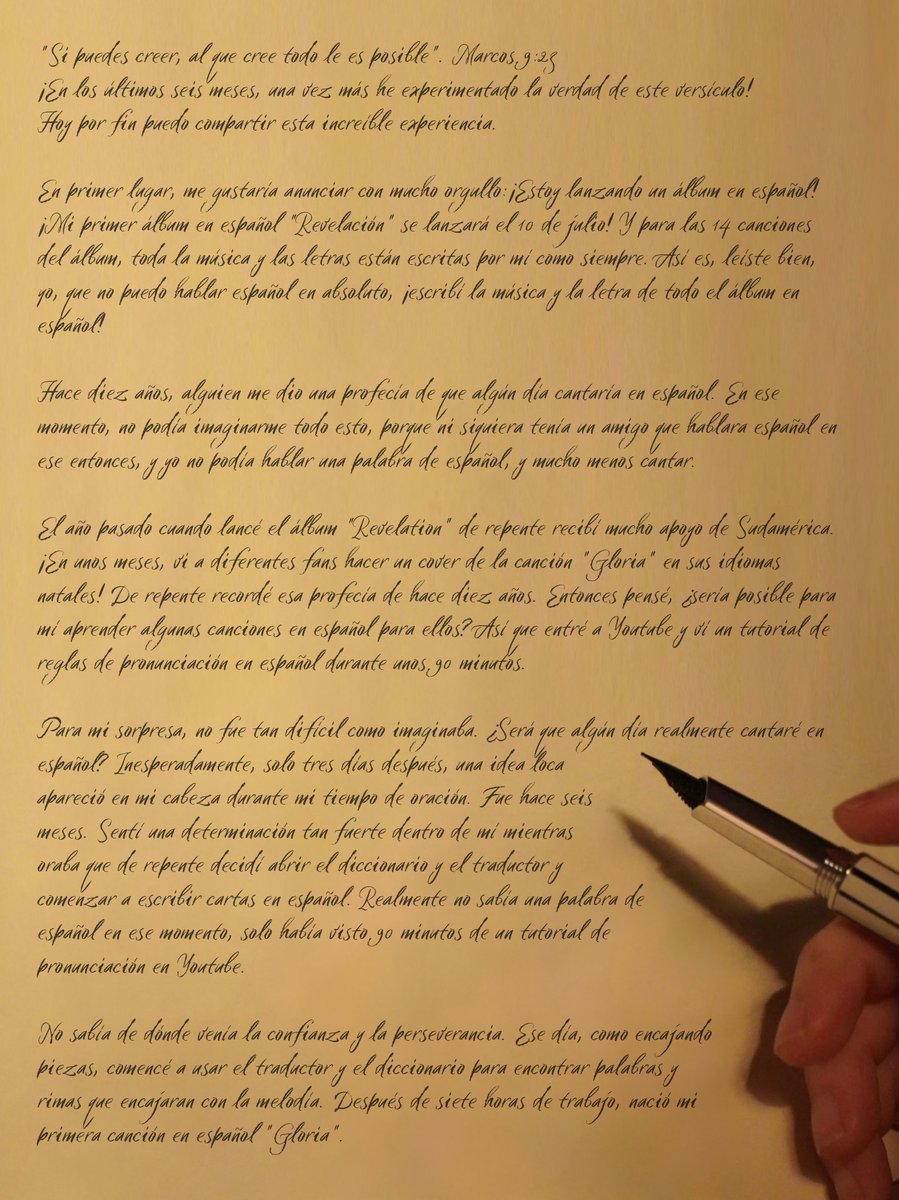 "Si puedes creer, al que cree todo le es posible". Marcos 9:23
¡En los últimos seis meses, una vez más he experimentado la verdad de este versículo!
Hoy por fin puedo compartir esta increíble experiencia.
En primer lugar, me gustaría anunciar con mucho orgullo: ¡Estoy lanzando un álbum en español!
¡Mi primer álbum en español "Revelación" se lanzará el 10 de julio! Y para las 14 canciones
del álbum, toda la música y las letras están escritas por mí como siempre. Así es, leíste bien,
yo, que no puedo hablar español en absoluto, ¡escribí la música y la letra de todo el álbum en
español!
Hace diez años, alguien me dio una profecía de que algún día cantaría en español. En ese
momento, no podía imaginarme todo esto, porque ni siquiera tenía un amigo que hablara español en
ese entonces, y yo no podía hablar una palabra de español, y mucho menos cantar.
El año pasado cuando lancé el álbum "Revelation" de repente recibí mucho apoyo de Sudamérica.
¡En unos meses, vi a diferentes fans hacer un cover de la canción "Gloria" en sus idiomas
natales! De repente recordé esa profecía de hace diez años. Entonces pensé, ¿sería posible para
mí aprender algunas canciones en español para ellos? Así que entré a Youtube y ví un tutorial de
reglas de pronunciación en español durante unos 90 minutos.
Para mi sorpresa, no fue tan difícil como imaginaba. ¿Será que algún día realmente cantaré en
español? Inesperadamente, solo tres días después, una idea loca
apareció en mi cabeza durante mi tiempo de oración. Fue hace seis
meses. Sentí una determinación tan fuerte dentro de mí mientras
oraba que de repente decidí abrir el diccionario y el traductor y
comenzar a escribir cartas en español. Realmente no sabía una palabra de
español en ese momento, solo había visto 90 minutos de un tutorial de
pronunciación en Youtube.
No sabía de dónde venía la confianza y la perseverancia. Ese día, como encajando
piezas, comencé a usar el traductor y el diccionario para encontrar palabras y
rimas que encajaran con la melodía. Después de siete horas de trabajo, nació mi
primera canción en español "Gloria".